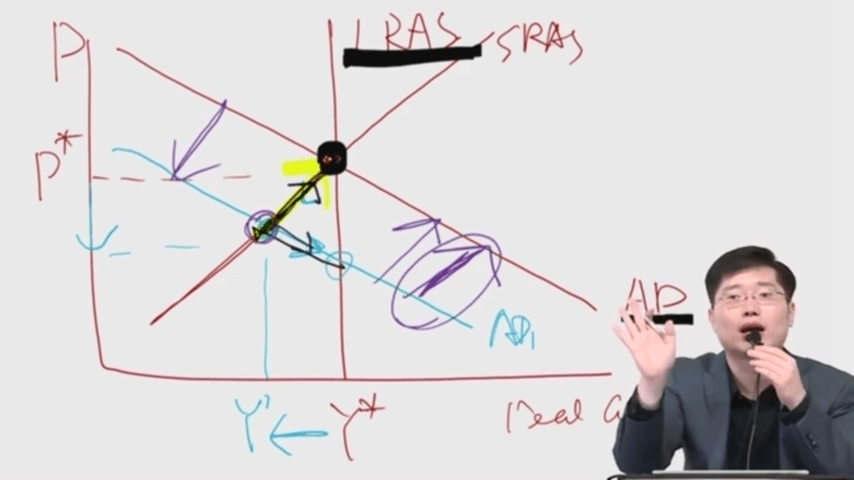 P
LRAS
SRAS
P*
AD
AD₁
Y' ← Y*
Real G